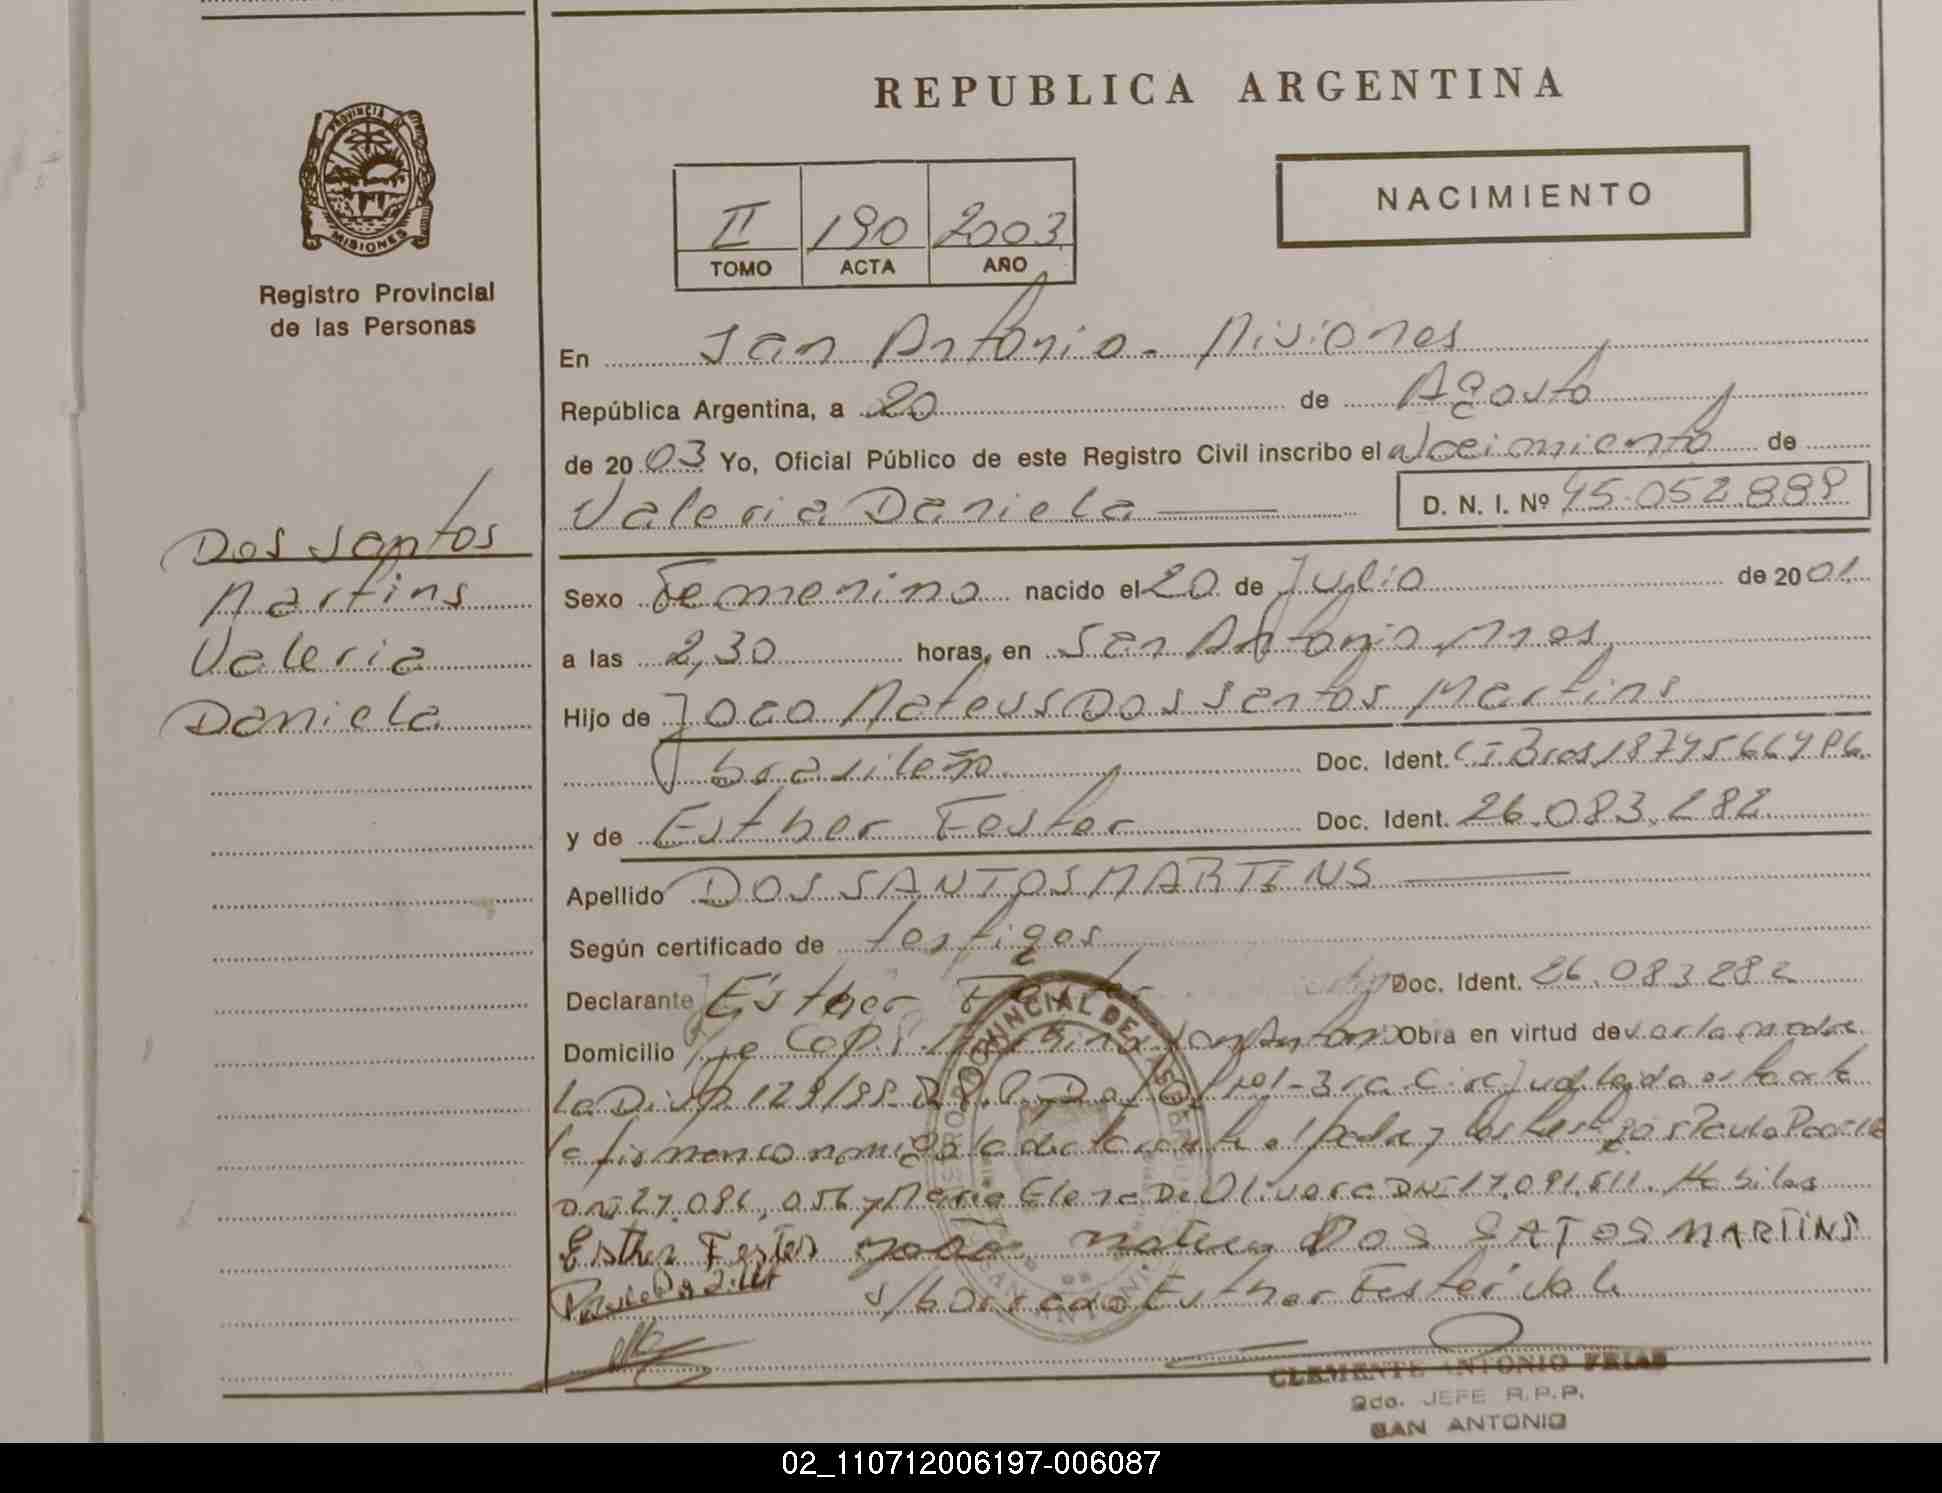 REPUBLICA ARGENTINA
PROVINCIA DE
MISIONES
Registro Provincial
de las Personas
NACIMIENTO
II 190 2003
TOMO ACTA AÑO
En San Antonio - Misiones
República Argentina, a 20 de Agosto
de 2003 Yo, Oficial Público de este Registro Civil inscribo el nacimiento de
Valeria Daniela D. N. I. Nº 45.052.889
Dos santos
Martins
Valeria
Daniela
Sexo Femenino nacido el 20 de Julio de 2001
a las 2,30 horas, en San Antonio Mnes
Hijo de Joao Mateus Dos Santos Martins
brasileño Doc. Ident.
y de Esther Fester Doc. Ident. 26.083.282
Apellido DOS SANTOS MARTINS
Según certificado de testigos
Declarante Esther Fester Doc. Ident. 26.083.282
Domicilio San Antonio Obra en virtud de
La Disp 129/99
la firman conmigo la declarante el padre y los testigos
DNI 27.086.056 y Maria Elena De Olivera DNI 17.091.511. Habiles
Esther Fester Joao Mateus DOS SATOS MARTINS
s/borrado Esther Fester Vale
CLEMENTE ANTONIO FRIAS
2do. JEFE R.P.P.
SAN ANTONIO
02_110712006197-006087